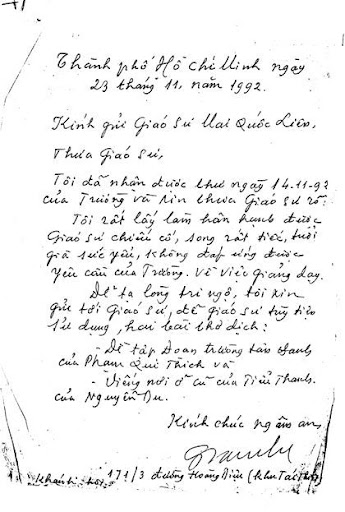 Thành phố Hồ Chí Minh ngày
23 tháng 11, năm 1992.
Kính gửi Giáo Sư Mai Quốc Liên,
Thưa Giáo Sư,
Tôi đã nhận được thư ngày 14-11-92
của Trường và xin thưa Giáo Sư rõ:
Tôi rất lấy làm hân hạnh được
Giáo sư chiếu cố, song rất tiếc, tuổi
già sức yếu, không đáp ứng được
yêu cầu của Trường. Về việc giảng dạy.
Để tạ lòng tri ngộ, tôi xin
gửi tới Giáo sư, để giáo sư tùy tiện
sử dụng, hai bài thơ dịch:
- Đề tập Đoạn trường tân thanh
của Phạm Quí Thích và
- Viếng nơi ở cũ của Tiểu Thanh
của Nguyễn Du.
Kính chúc ngâm an
Khánh hội 171/3 đường Hoàng Diệu (khu